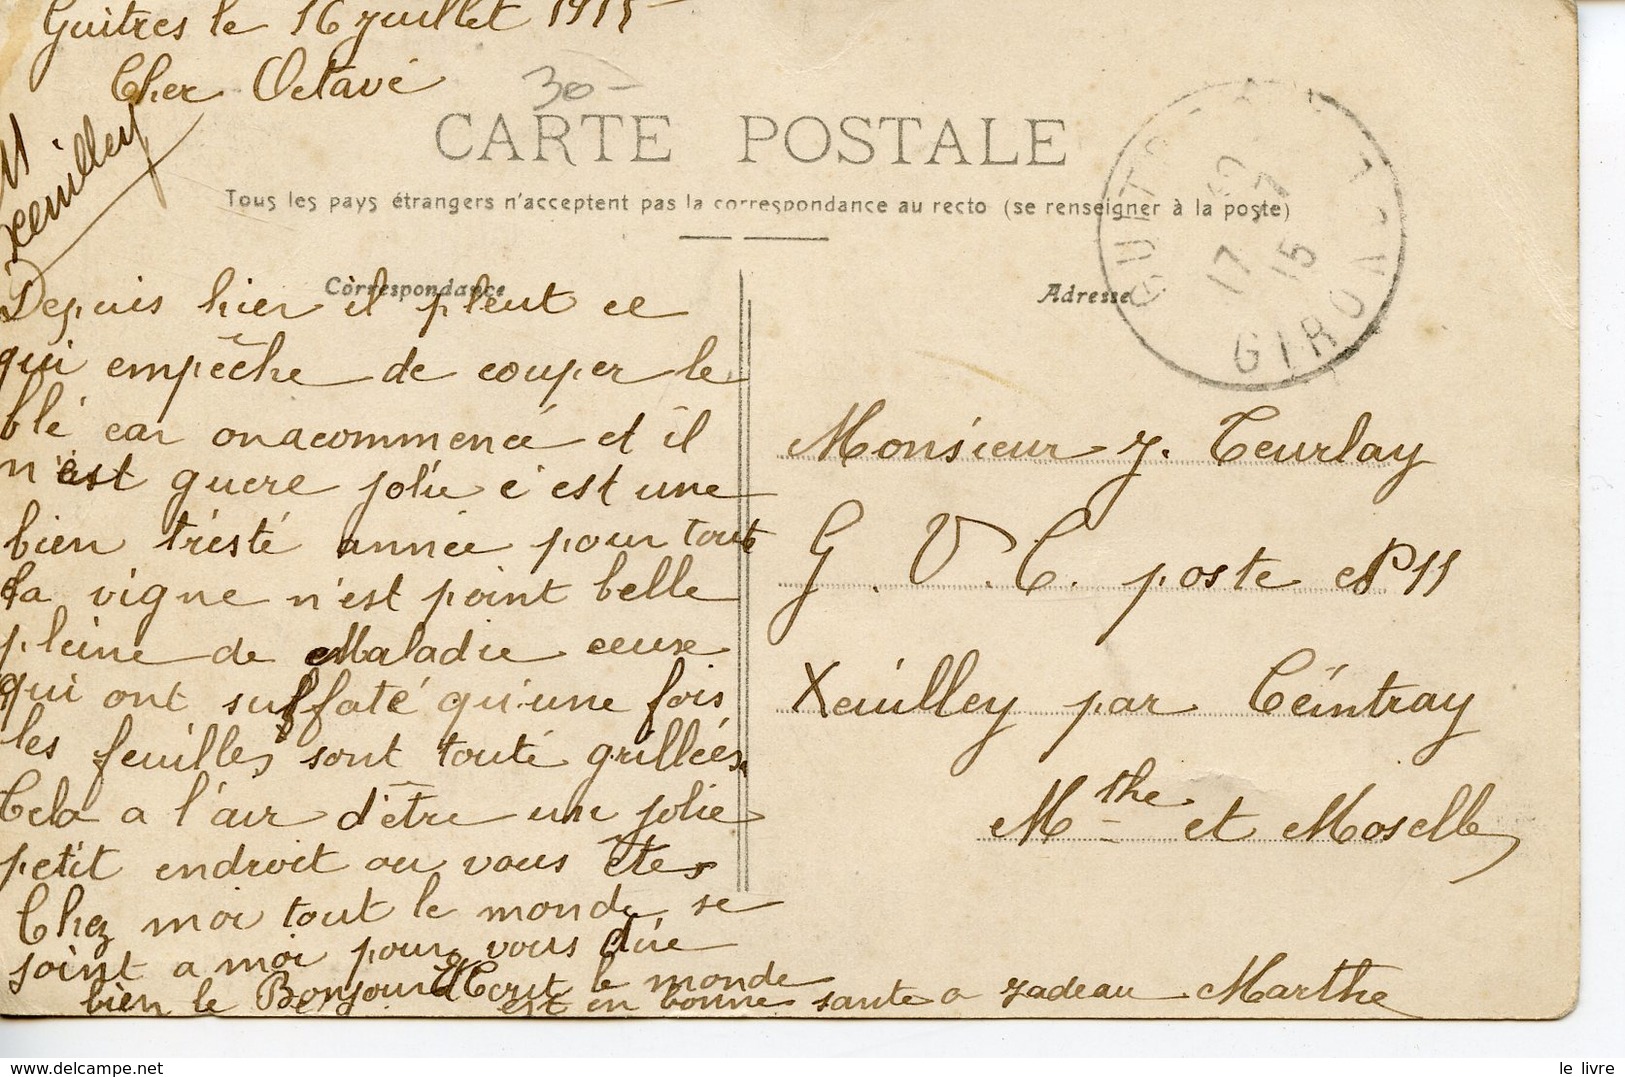 Guitres le 16 juillet 1915
Cher Octavé
30-
11
Xeuilley
CARTE POSTALE
Tous les pays étrangers n'acceptent pas la correspondance au recto (se renseigner à la poste)
Correspondance
Adresse
17 7
15
GIRONDE
Depuis hier il pleut ce
qui empêche de couper le
blé car on a commencé et il
n'est guere jolie c'est une
bien tristé année pour tout
la vigne n'est point belle
pleine de Maladie ceux
qui ont sulfaté qu'une fois
les feuilles sont touté grillées
Cela a l'air d'être un jolie
petit endroit ou vous êtes
Chez moi tout le monde se
joint a moi pour vous dire
bien le Bonjour Tout le monde
est en bonne sante a Jadeau Marthe
Monsieur J. Teurlay
G. V. C. poste N° 11
Xeuilley par Ceintray
Mthe et Moselle
le livre